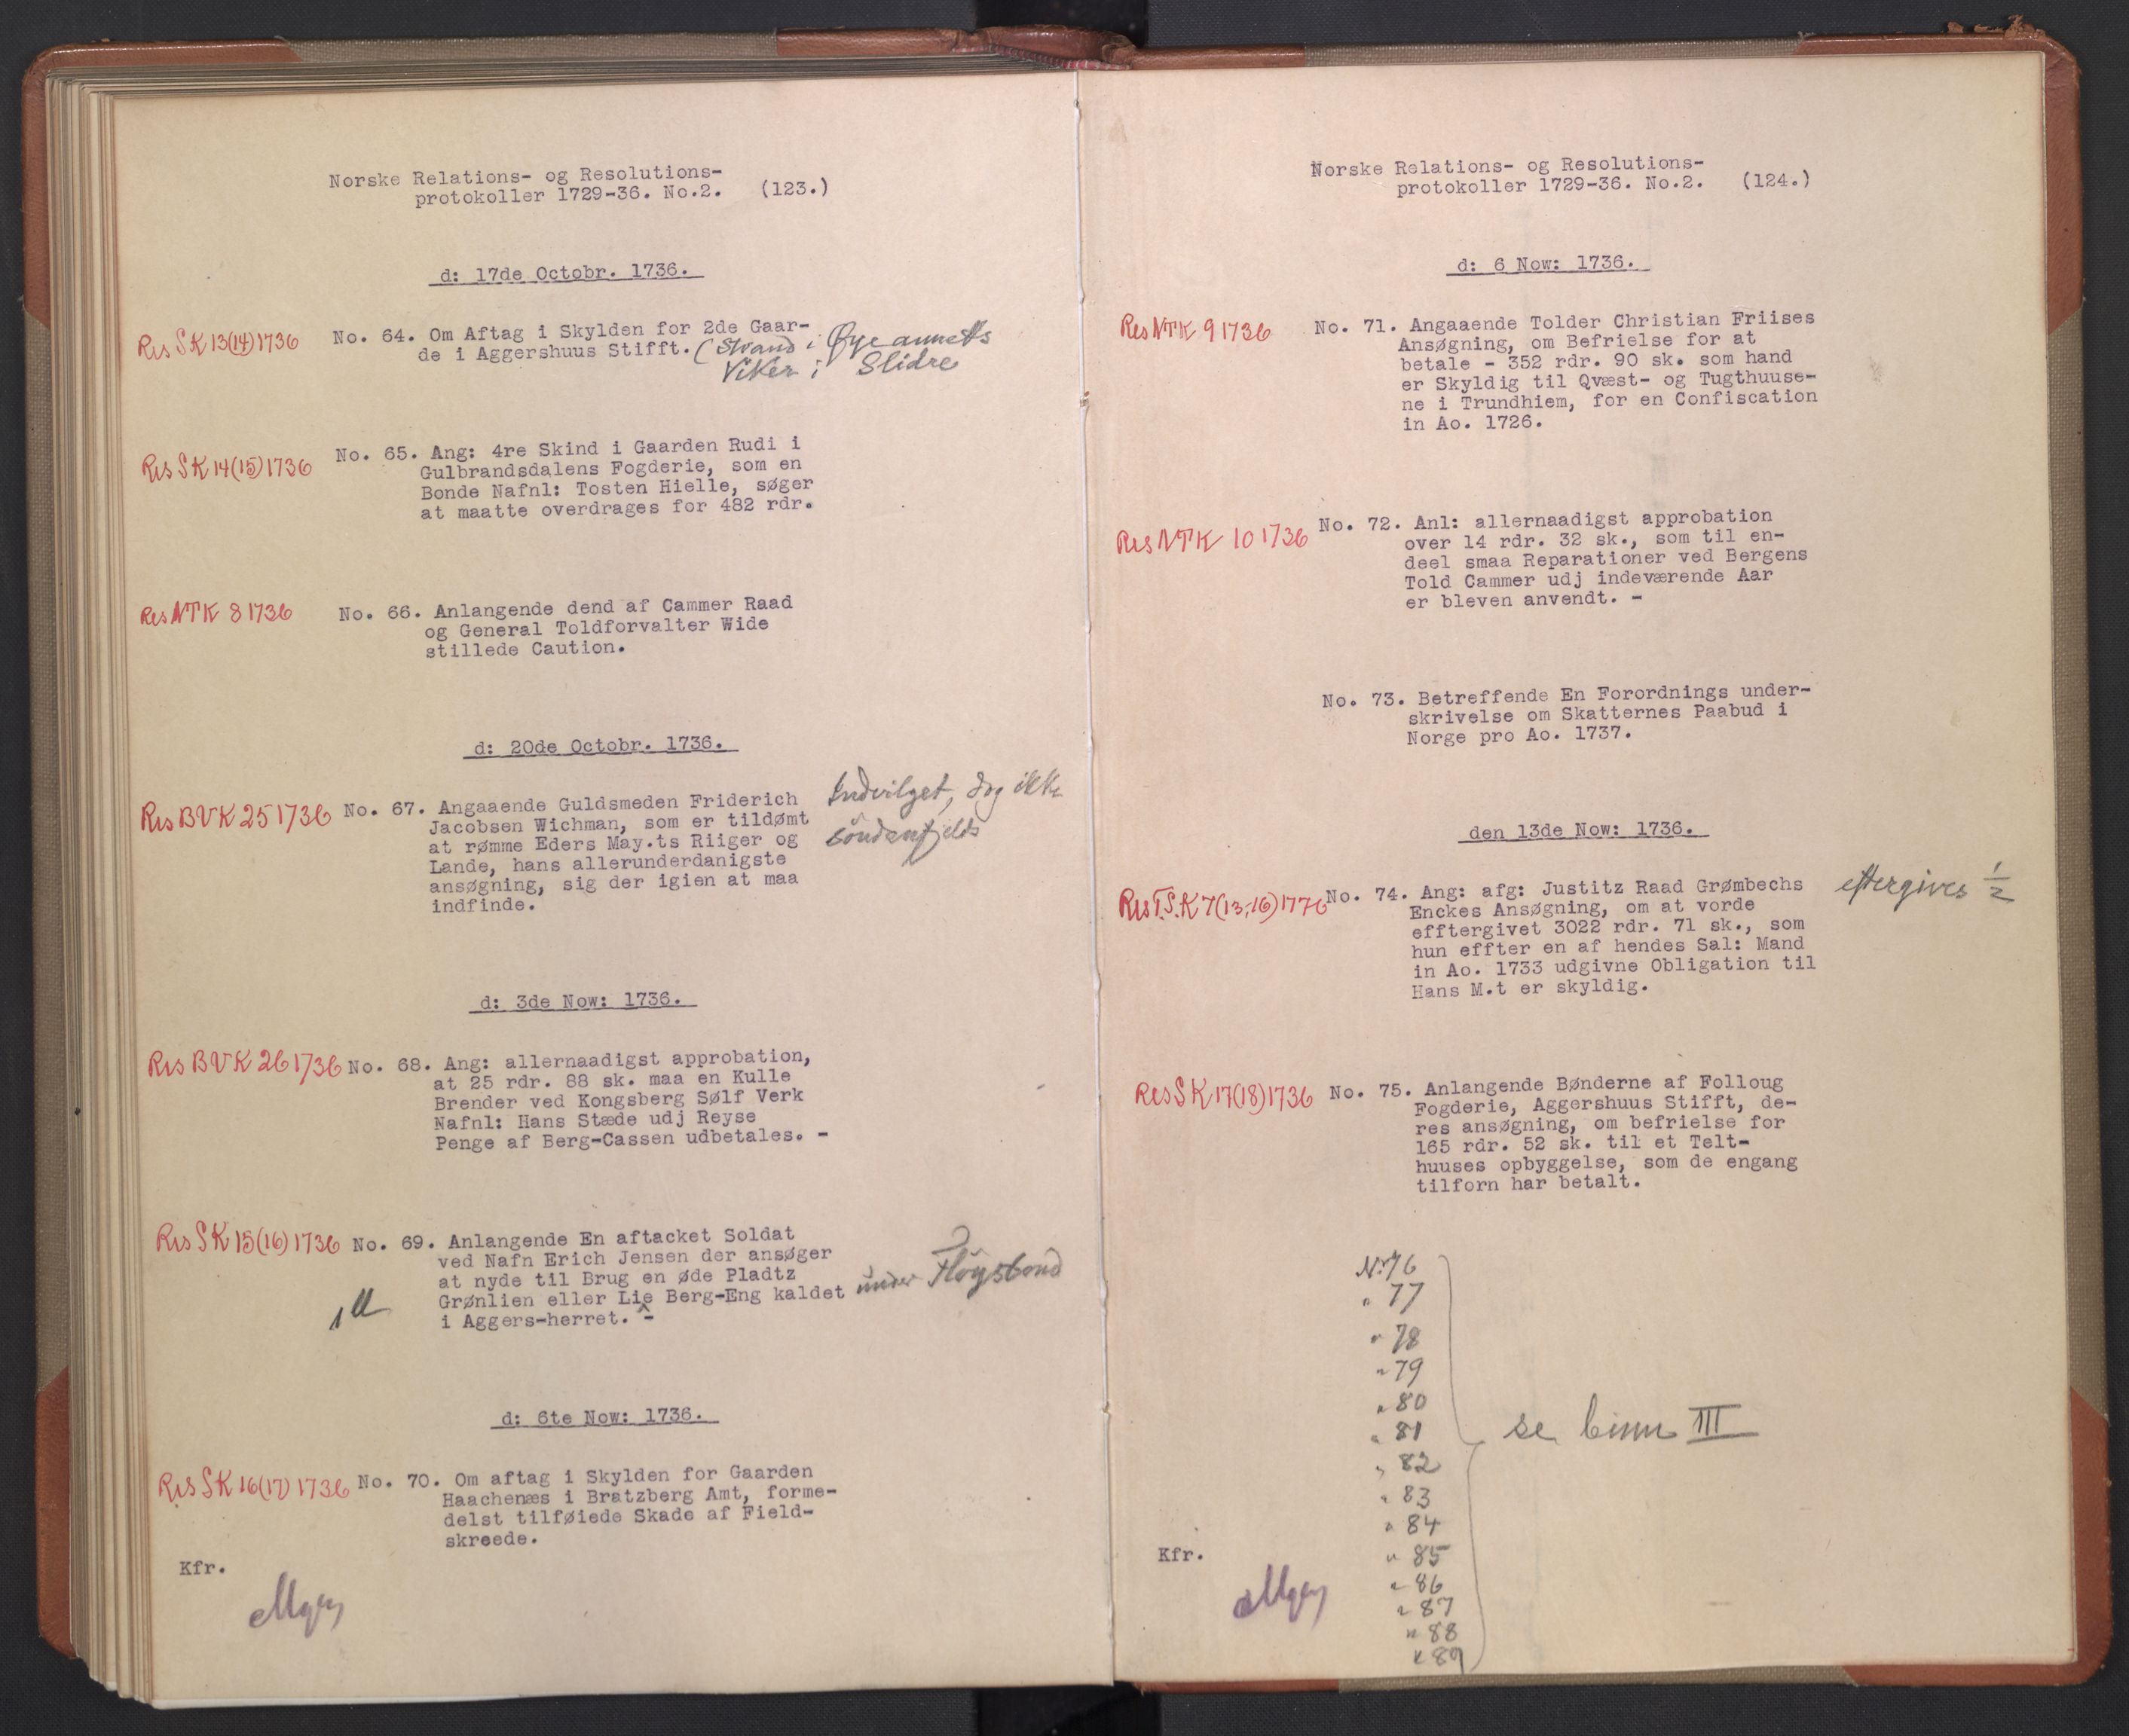 Norske Relations- og Resolutions-
protokoller 1729-36. No.2. (123.)
d: 17de Octobr. 1736.
Res SK 13(14) 1736
No. 64. Om Aftag i Skylden for 2de Gaar-
de i Aggershuus Stifft. (Strand i Øye annets
Viker i Slidre
Res SK 14(15) 1736
No. 65. Ang: 4re Skind i Gaarden Rudi i
Gulbrandsdalens Fogderie, som en
Bonde Nafnl: Tosten Hielle, søger
at maatte overdrages for 482 rdr.
Res NTK 8 1736
No. 66. Anlangende dend af Cammer Raad
og General Toldforvalter Wide
stillede Caution.
d: 20de Octobr. 1736.
Res BVK 25 1736
No. 67. Angaaende Guldsmeden Friderich
Jacobsen Wichman, som er tildømt
at rømme Eders May.ts Riiger og
Lande, hans allerunderdanigste
ansøgning, sig der igien at maa
indfinde.
Indvilget, dog ikke
söndenfjelds
d: 3de Now: 1736.
Res BVK 26 1736
No. 68. Ang: allernaadigst approbation,
at 25 rdr. 88 sk. maa en Kulle
Brender ved Kongsberg Sølf Verk
Nafnl: Hans Stæde udj Reyse
Penge af Berg-Cassen udbetales. -
Res SK 15(16) 1736
No. 69. Anlangende En aftacket Soldat
ved Nafn Erich Jensen der ansøger
at nyde til Brug en øde Pladtz
Grønlien eller Lie Berg-Eng kaldet under Fløysbond
i Aggers-herret. -
d: 6te Now: 1736.
Res SK 16(17) 1736
No. 70. Om aftag i Skylden for Gaarden
Haachenæs i Bratzberg Amt, forme-
delst tilføiede Skade af Field-
skreede.
Kfr.
Norske Relations- og Resolutions-
protokoller 1729-36. No.2. (124.)
d: 6 Now: 1736.
Res NTK 9 1736
No. 71. Angaaende Tolder Christian Friises
Ansøgning, om Befrielse for at
betale - 352 rdr. 90 sk. som hand
er Skyldig til Qvæst- og Tugthuuse-
ne i Trundhiem, for en Confiscation
in Ao. 1726.
Res NTK 10 1736
No. 72. Anl: allernaadigst approbation
over 14 rdr. 32 sk., som til en-
deel smaa Reparationer ved Bergens
Told Cammer udj indeværende Aar
er bleven anvendt. -
No. 73. Betreffende En Forordnings under-
skrivelse om Skatternes Paabud i
Norge pro Ao. 1737.
den 13de Now: 1736.
Res T.S.K 7(13,16) 1776
No. 74. Ang: afg: Justitz Raad Grømbechs
Enckes Ansøgning, om at vorde
efftergivet 3022 rdr. 71 sk., som
hun effter en af hendes Sal: Mand
in Ao. 1733 udgivne Obligation til
Hans M.t er skyldig.
eftergives 1/2
Res SK 17(18) 1736
No. 75. Anlangende Bønderne af Folloug
Fogderie, Aggershuus Stifft, de-
res ansøgning, om befrielse for
165 rdr. 52 sk. til et Telt-
huuses opbyggelse, som de engang
tilforn har betalt.
Nr 76
" 77
" 78
" 79
" 80
" 81
" 82
" 83
" 84
" 85
" 86
" 87
" 88
" 89
se binn III
Kfr.